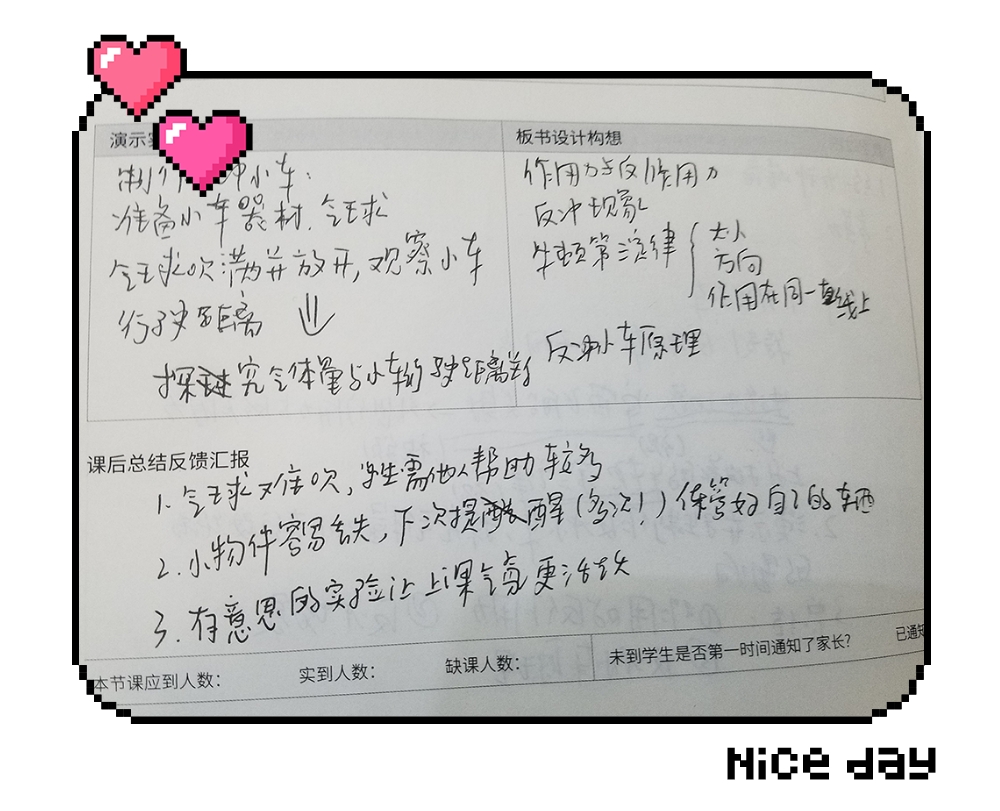 演示
板书设计构想
制作 冲小车：
准备小车器材、气球
气球吹满并放开，观察小车
行驶距离
探究气体量与小车行驶距离
作用力与反作用力
反冲现象
牛顿第三定律
大小
方向
作用在同一直线上
反冲小车原理
课后总结反馈汇报
1. 气球难吹，学生需他人帮助较多
2. 小物件容易丢失，下次提醒（多次！）保管好自己的东西
3. 有意思的实验让上课气氛更活跃
本节课应到人数：
实到人数：
缺课人数：
未到学生是否第一时间通知了家长？
已通知
Nice day